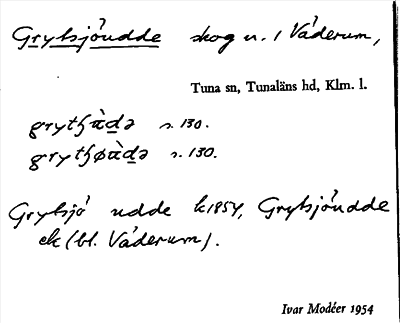 Grytsjöudde skog n. / Våderum,
Tuna sn, Tunaläns hd, Klm. l.
s. 130.
s. 130.
Grytsjö udde k1854, Grytsjöudde
ek (bl. Våderum).
Ivar Modéer 1954